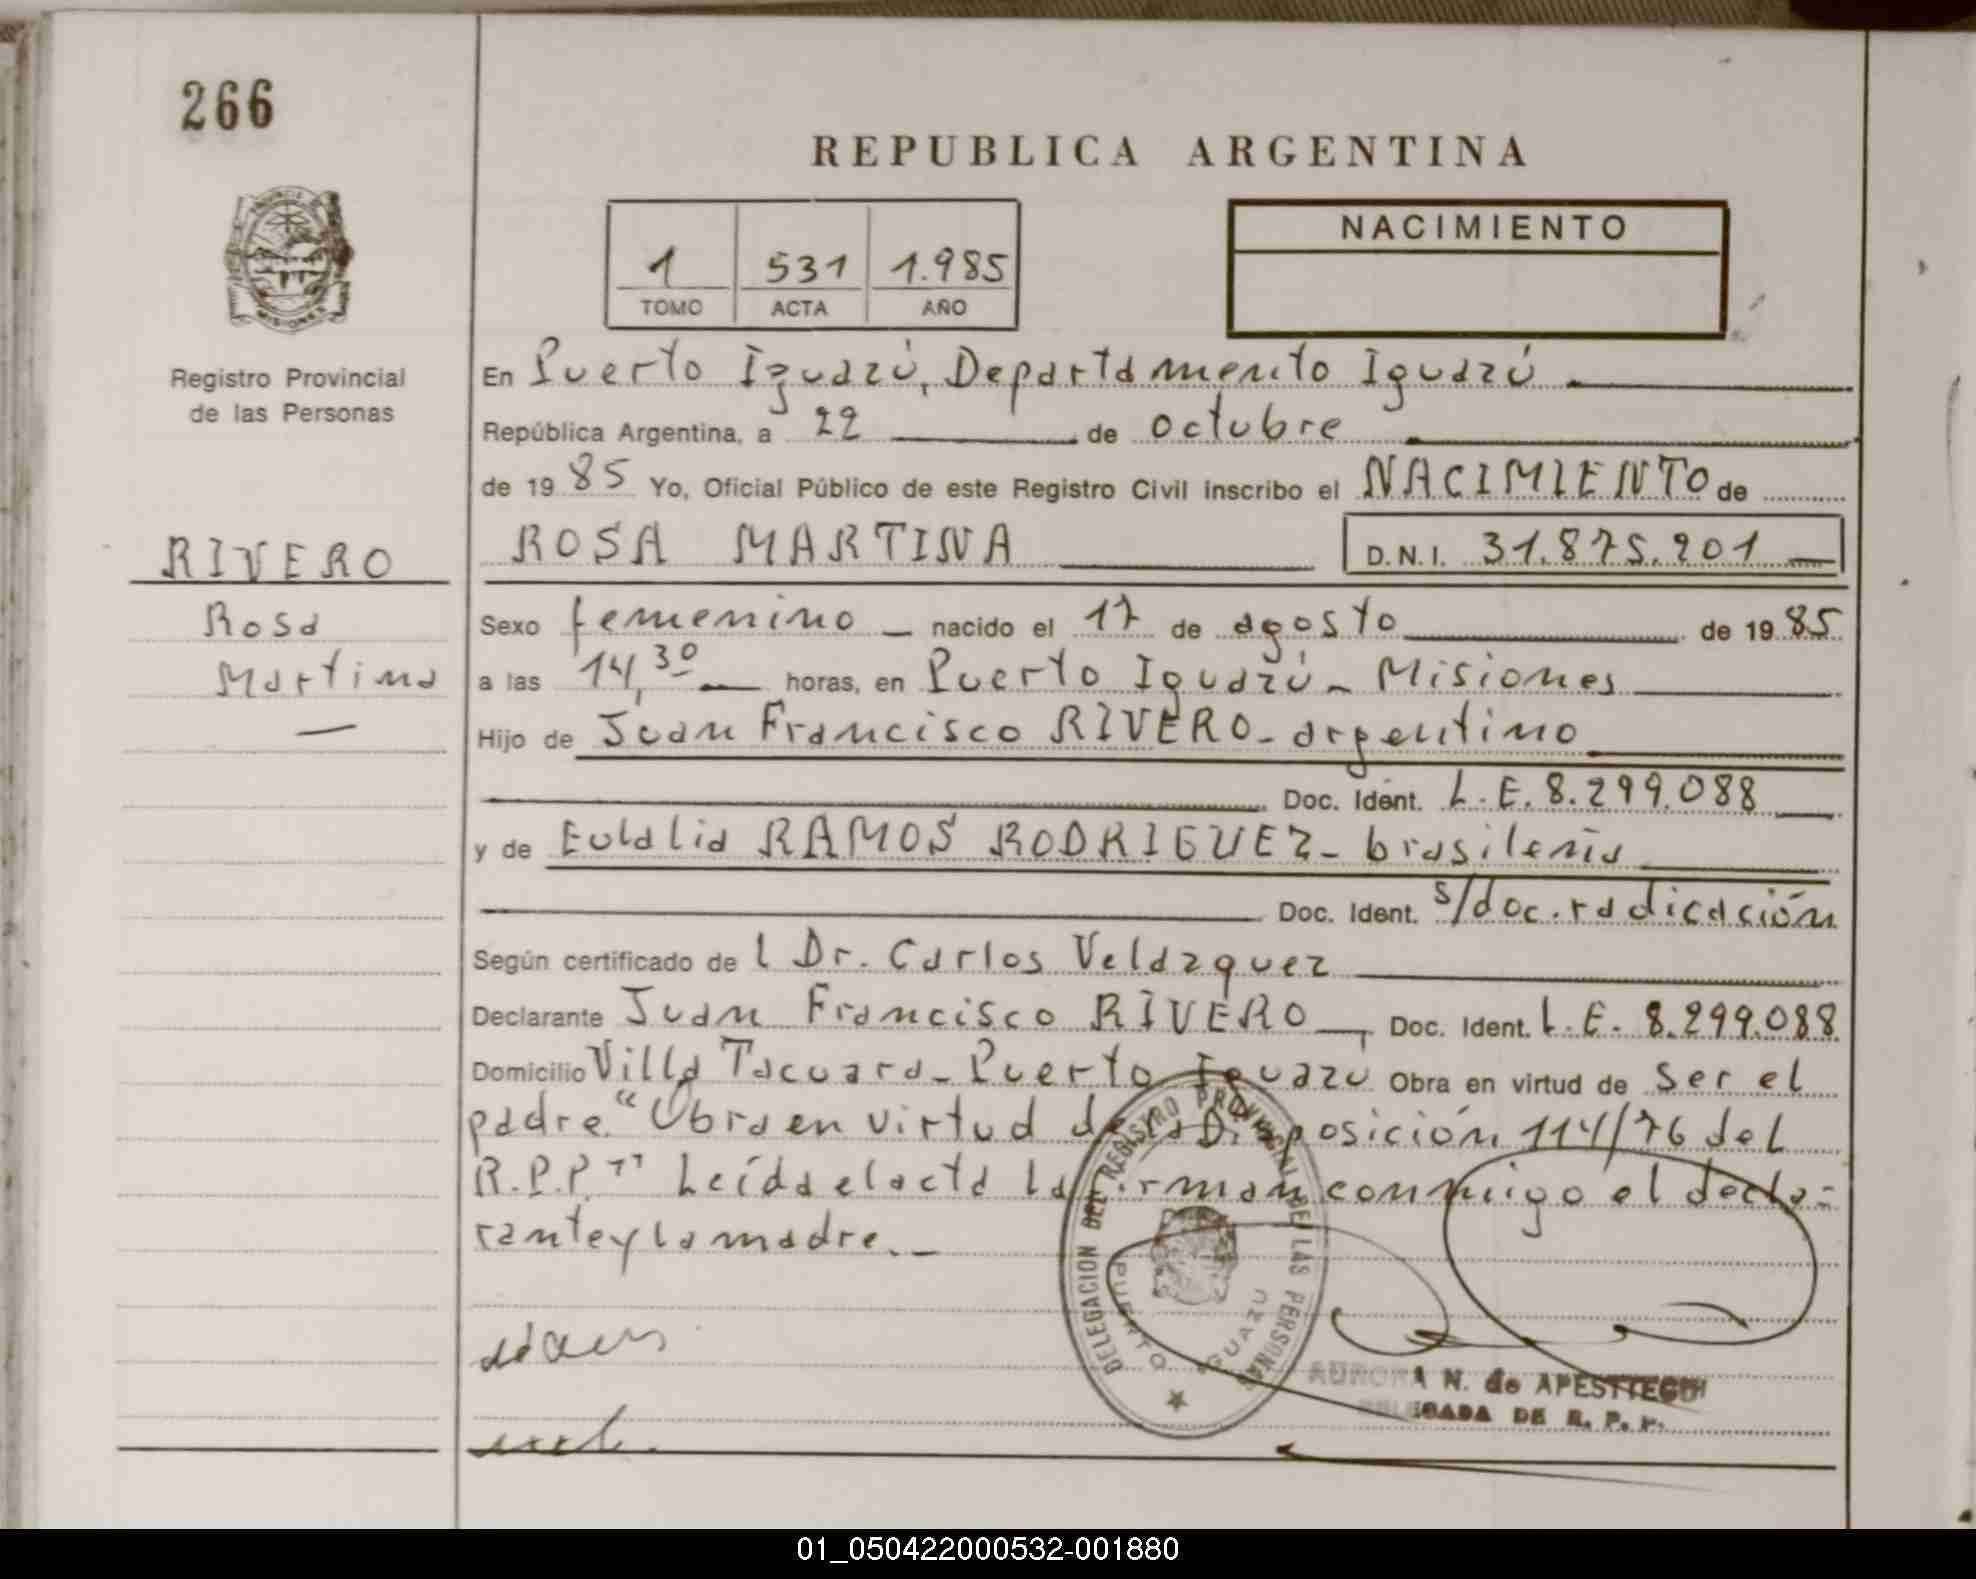 266
REPUBLICA ARGENTINA
1 531 1.985
TOMO ACTA AÑO
NACIMIENTO
MISIONES
Registro Provincial
de las Personas
RIVERO
Rosa
Martina
En Puerto Iguazú, Departamento Iguazú
República Argentina, a 22 de octubre
de 19 85 Yo, Oficial Público de este Registro Civil inscribo el NACIMIENTO de
ROSA MARTINA D.N.I. 31.875.201
Sexo femenino nacido el 17 de agosto de 19 85
a las 14,30 horas, en Puerto Iguazú - Misiones
Hijo de Juan Francisco RIVERO - argentino
Doc. Ident. L.E. 8.299.088
y de Eulalia RAMOS RODRIGUEZ - brasileña
Doc. Ident. s/doc. radicación
Según certificado de l Dr. Carlos Velazquez
Declarante Juan Francisco RIVERO Doc. Ident. L.E. 8.299.088
Domicilio Villa Tacuara - Puerto Iguazú Obra en virtud de ser el
padre. "Obra en virtud de la Disposición 114/76 del
R.P.P." Leída el acta la firman conmigo el decla-
rante y la madre. -
DELEGACION DEL REGISTRO PROVINCIAL DE LAS PERSONAS
PUERTO IGUAZU
AURORA N. de APESTEGUI
DELEGADA DE R. P. P.
01_050422000532-001880